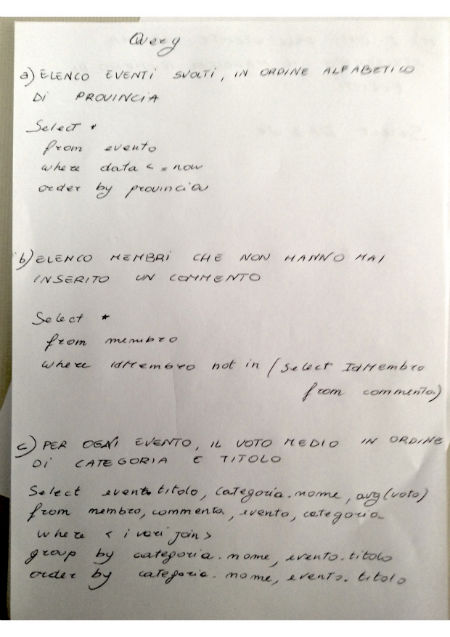 Query
a) ELENCO EVENTI SVOLTI, IN ORDINE ALFABETICO
DI PROVINCIA
Select *
from evento
where data <= now
order by provincia
b) ELENCO MEMBRI CHE NON HANNO MAI
INSERITO UN COMMENTO
Select *
from membro
where idMembro not in (Select IdMembro
from commento)
c) PER OGNI EVENTO, IL VOTO MEDIO IN ORDINE
DI CATEGORIA E TITOLO
Select evento.titolo, categoria.nome, avg(voto)
from membro, commento, evento, categoria
where <i vari join>
group by categoria.nome, evento.titolo
order by categoria.nome, evento.titolo